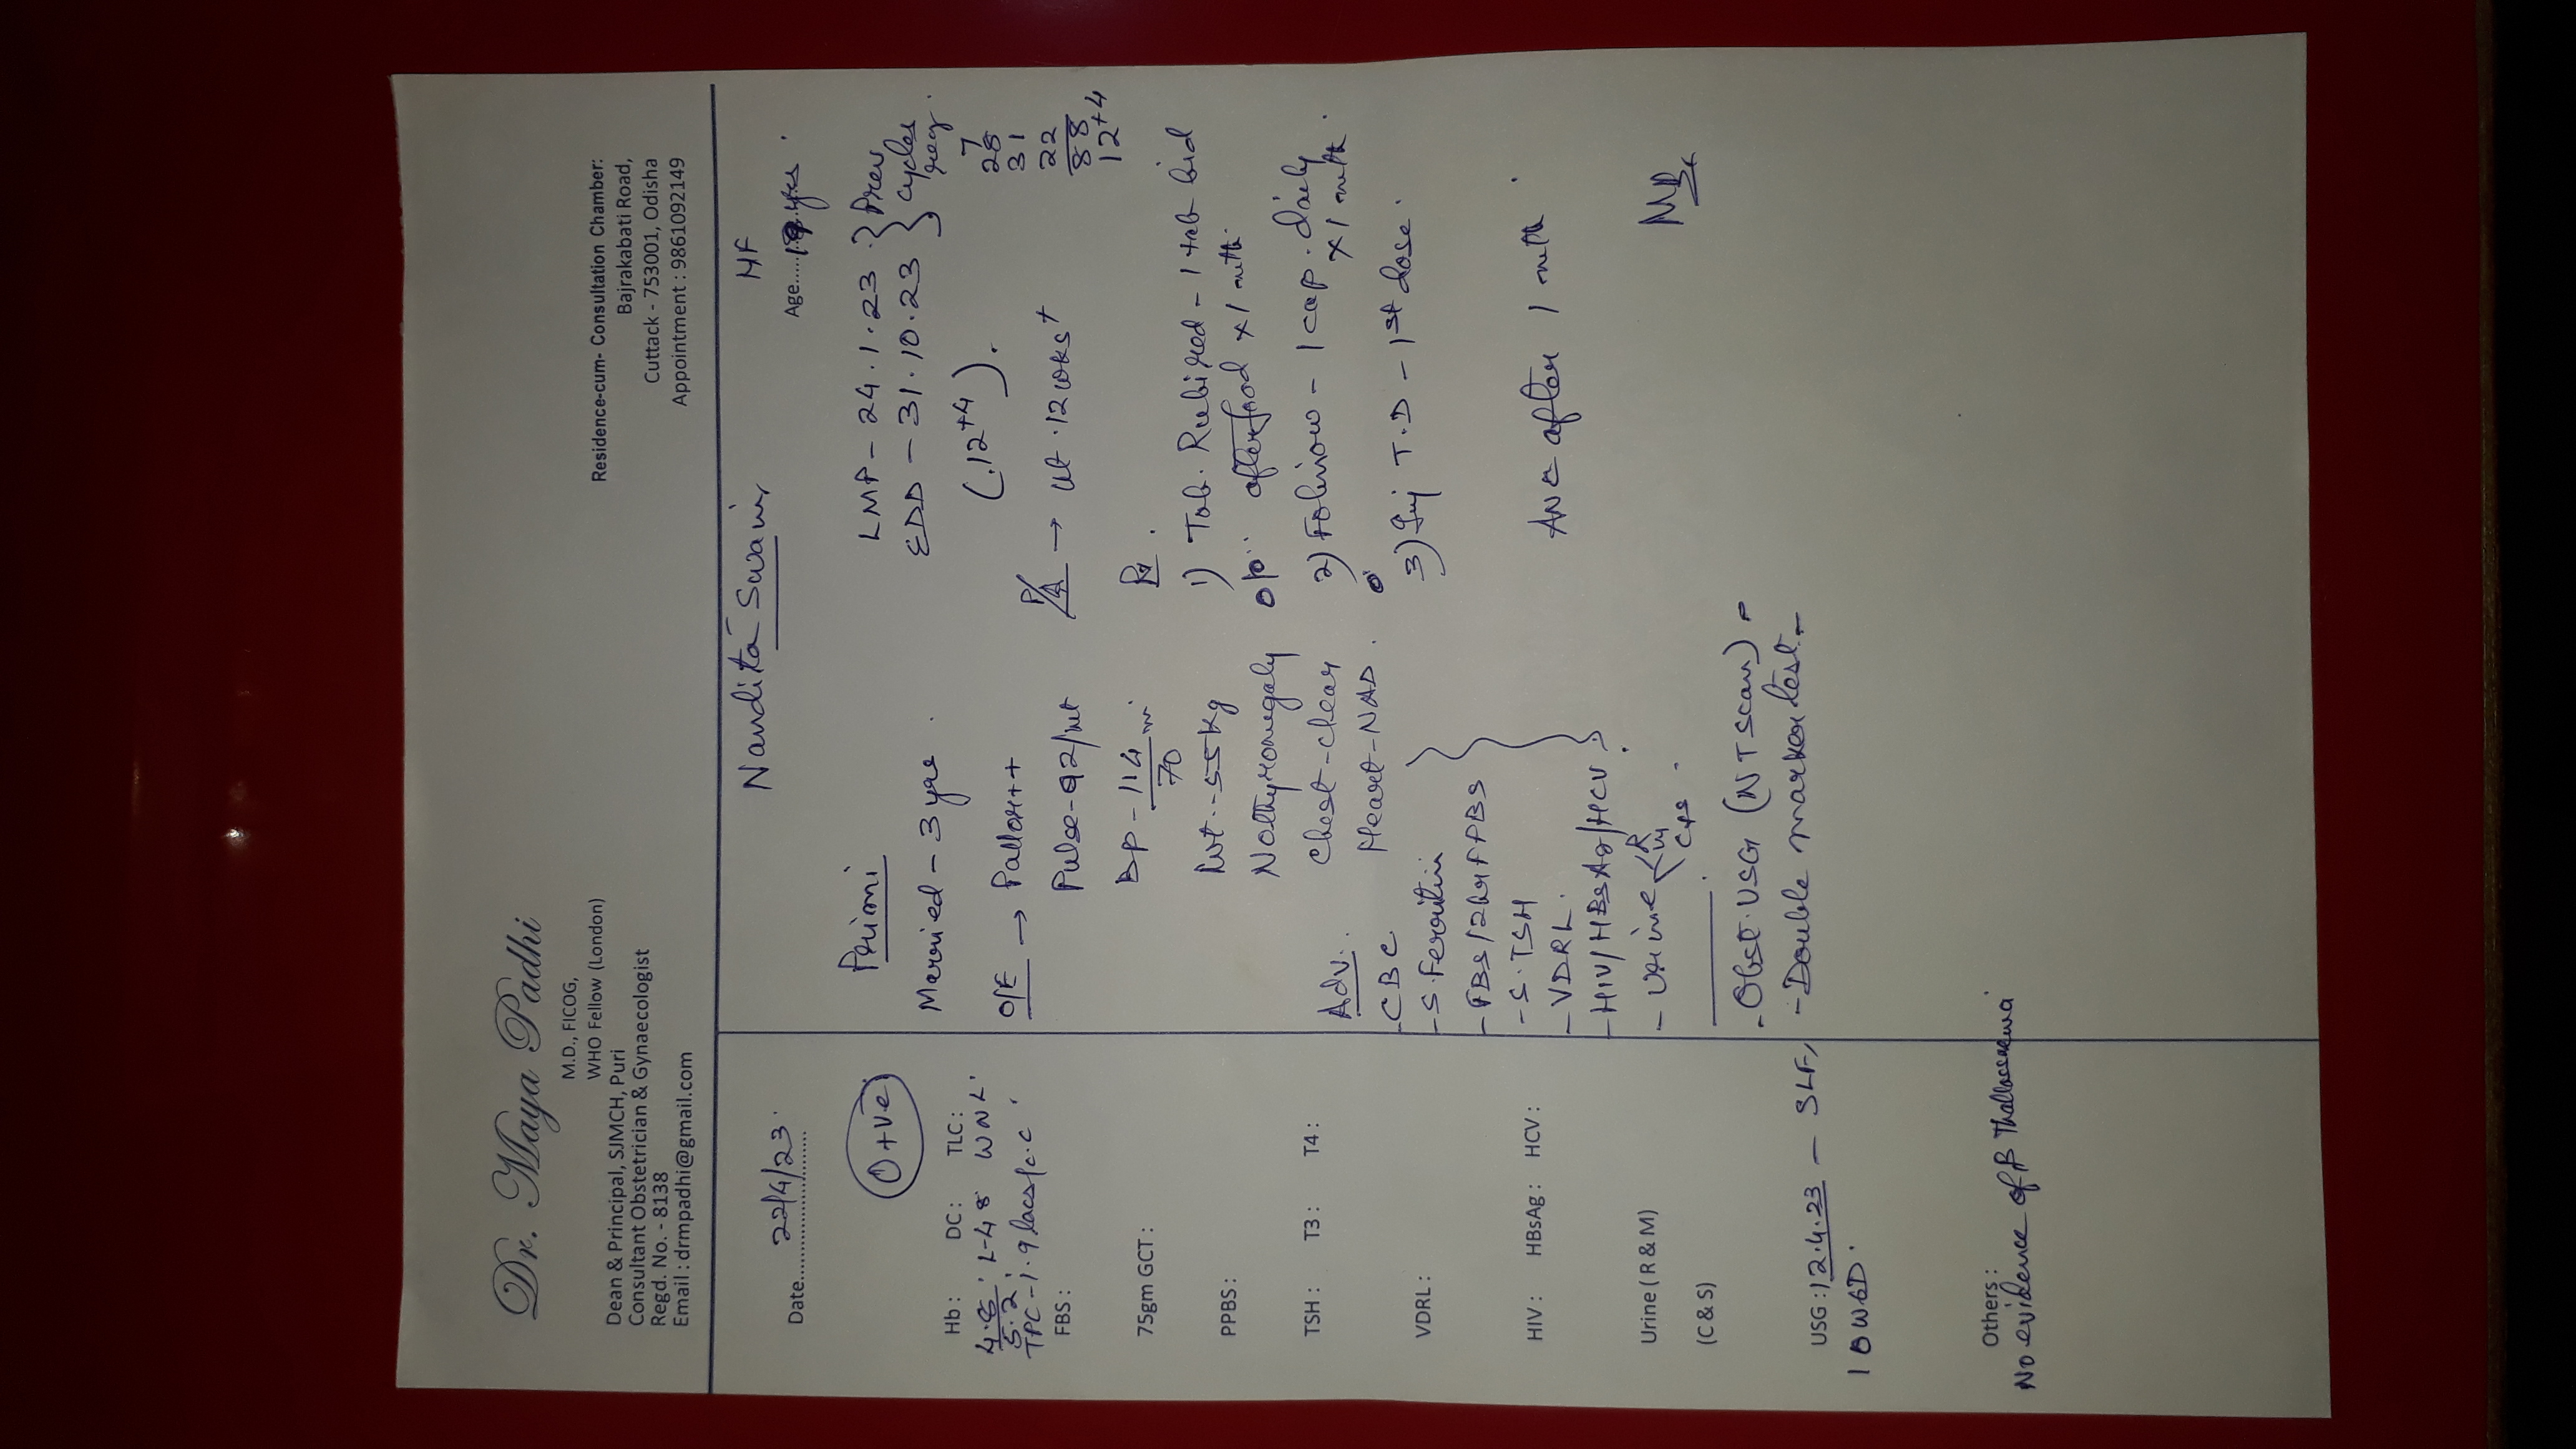 Dr. Maya Padhi
M.D., FICOG,
WHO Fellow (London)
Dean & Principal, SJMCH, Puri
Consultant Obstetrician & Gynaecologist
Regd. No. - 8138
Email : drmpadhi@gmail.com
Residence-cum- Consultation Chamber:
Bajrakabati Road,
Cuttack - 753001, Odisha
Appointment : 9861092149
Nandita Swain
HF
Date.......... 22/4/23
Age..... yrs.
O+ve
Hb : DC : TLC :
L-48 WNL
5.2
TPC - 1.9 lacs/c.c
FBS :
75gm GCT :
PPBS :
TSH : T3 : T4 :
VDRL :
HIV : HBsAg : HCV :
Urine (R & M)
(C & S)
USG : 12.4.23 - SLF,
10W6D.
Others :
No evidence of β Thalassaemia
Primi
Married - 3 yrs.
O/E → Pallor++
Pulse - 92/mt
BP - 114/70
Wt. - 55 kg
No thyromegaly
Chest - clear
Heart - NAD.
Adv.
- CBC
- S. Ferritin
- FBS/2hr PPBS
- S. TSH
- VDRL.
- HIV/HBsAg/HCV.
- Urine R/M
C/S
- Obst. USG (NT scan)
- Double marker test
LMP - 24.1.23 } Prev
EDD - 31.10.23 } cycles
reg.
(12+4).
7
28
31
22
88
12+4
P/A → ut. 12 wks+
Rx.
1) Tab. Rubired - 1 tab bid
after food x 1 mth.
2) Folinow - 1 cap. daily
x 1 mth.
3) Inj T.D - 1st dose.
ANC after 1 mth.